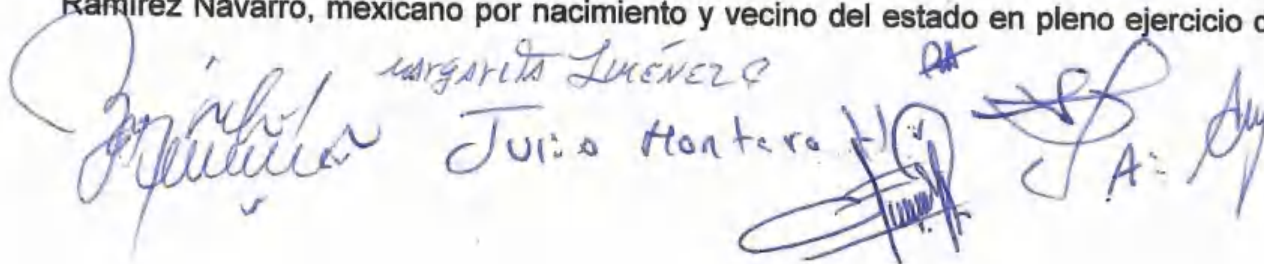 Ramírez Navarro, mexicano por nacimiento y vecino del estado en pleno ejercicio d
MARGARITA JIMÉNEZ C
Julio Montero H
A: